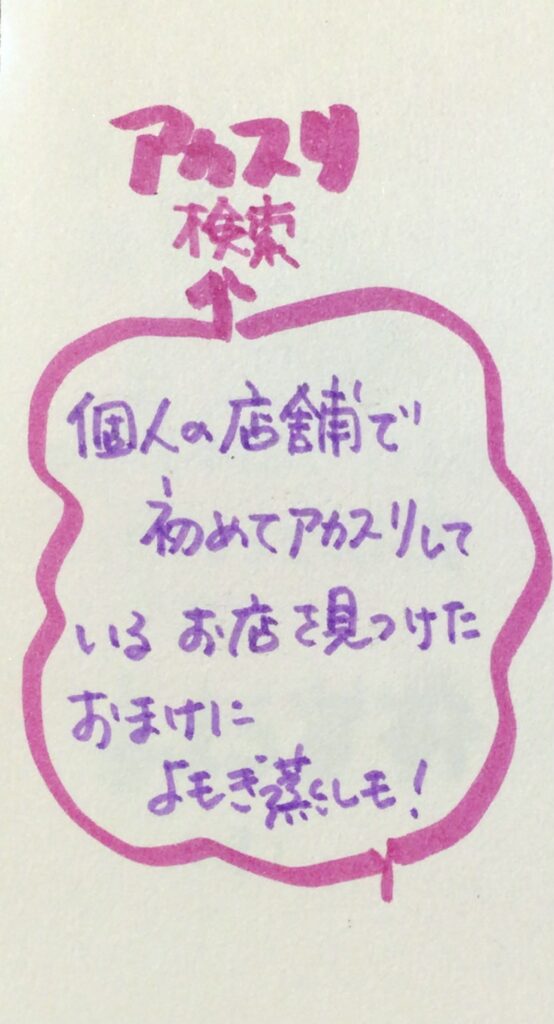 アカスリ
検索
個人の店舗で
初めてアカスリして
いるお店を見つけた
おまけに
よもぎ蒸しも!